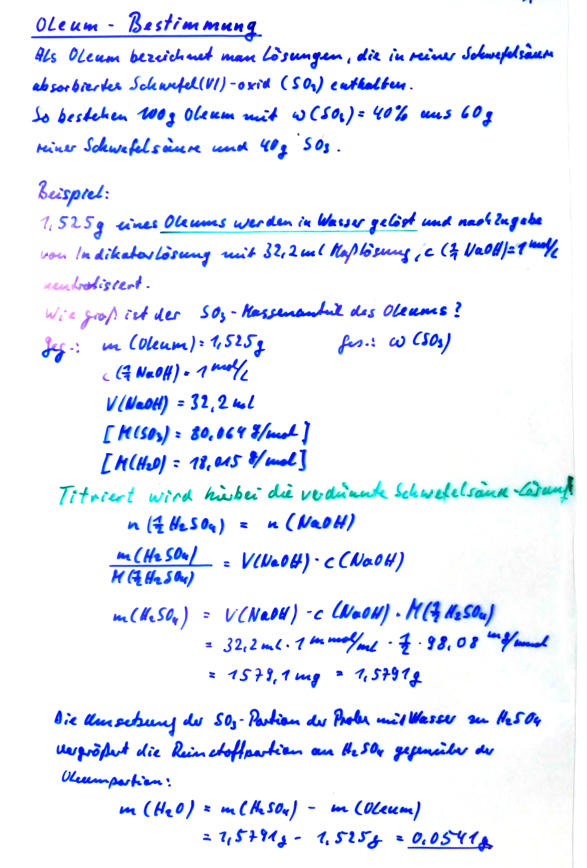 Oleum - Bestimmung
Als Oleum bezeichnet man Lösungen, die in reiner Schwefelsäure
absorbiertes Schwefel(VI)-oxid (SO₃) enthalten.
So bestehen 100g Oleum mit w(SO₃) = 40% aus 60g
reiner Schwefelsäure und 40g SO₃.
Beispiel:
1,525g eines Oleums werden in Wasser gelöst und nach Zugabe
von Indikatorlösung mit 32,2ml Maßlösung, c (1/1 NaOH) = 1 mol/L
neutralisiert.
Wie groß ist der SO₃-Massenanteil des Oleums?
geg.: m (Oleum) = 1,525g ges.: w (SO₃)
c (1/1 NaOH) = 1 mol/L
V(NaOH) = 32,2 ml
[M(SO₃) = 80,064 g/mol]
[M(H₂O) = 18,015 g/mol]
Titriert wird hierbei die verdünnte Schwefelsäure-Lösung!
n (1/2 H₂SO₄) = n (NaOH)
m(H₂SO₄) / M(1/2 H₂SO₄) = V(NaOH) · c(NaOH)
m(H₂SO₄) = V(NaOH) · c (NaOH) · M(1/2 H₂SO₄)
= 32,2ml · 1 mmol/ml · 1/2 · 98,08 mg/mmol
= 1579,1mg = 1,5791g
Die Umsetzung der SO₃-Portion der Probe mit Wasser zu H₂SO₄
vergrößert die Reinstoffportion an H₂SO₄ gegenüber der
Oleumportion:
m (H₂O) = m(H₂SO₄) - m(Oleum)
= 1,5791g - 1,525g = 0,0541g